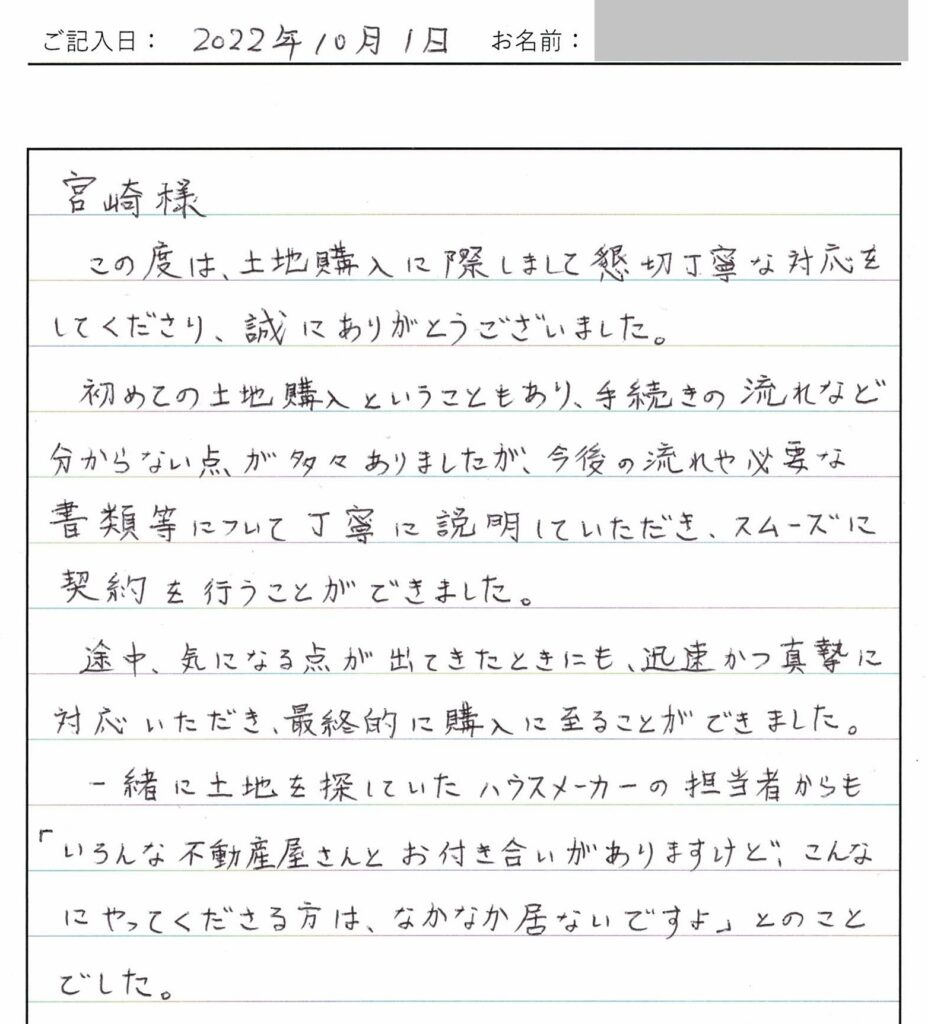 ご記入日： 2022年10月1日 お名前：
宮崎様
この度は、土地購入に際しまして懇切丁寧な対応を
してくださり、誠にありがとうございました。
初めての土地購入ということもあり、手続きの流れなど
分からない点が多々ありましたが、今後の流れや必要な
書類等について丁寧に説明していただき、スムーズに
契約を行うことができました。
途中、気になる点が出てきたときにも、迅速かつ真摯に
対応いただき、最終的に購入に至ることができました。
一緒に土地を探していたハウスメーカーの担当者からも
「いろんな不動産屋さんとお付き合いがありますけど、こんな
にやってくださる方は、なかなか居ないですよ」とのこと
でした。